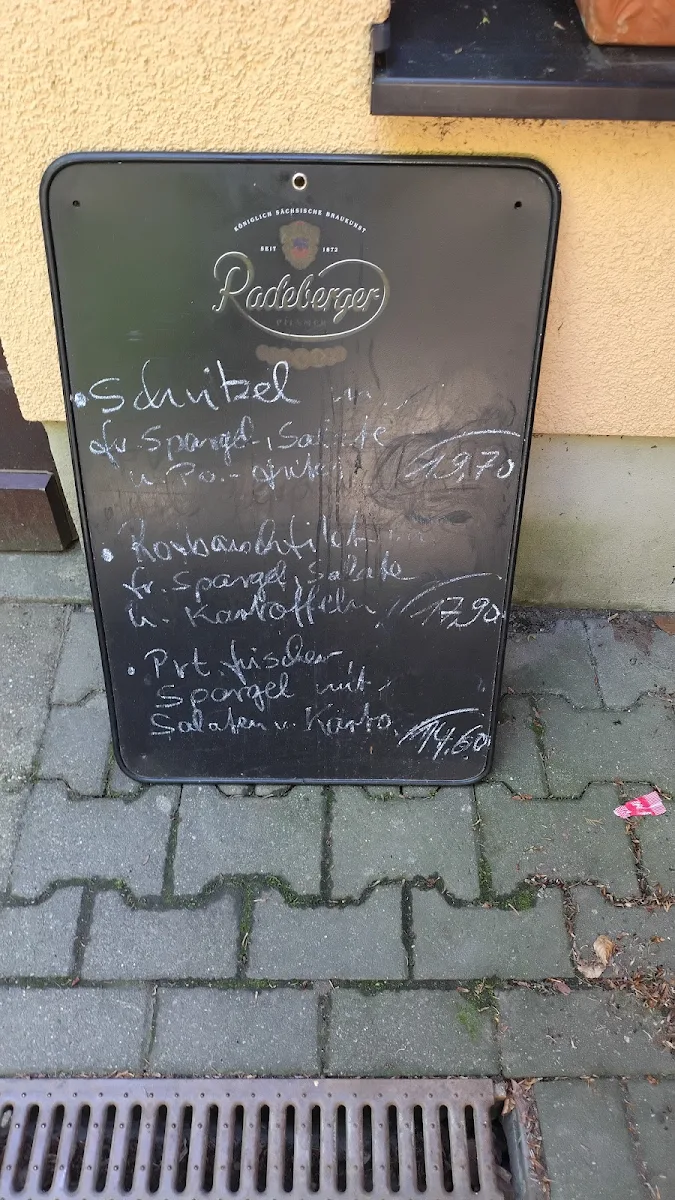 KÖNIGLICH SÄCHSISCHE BRAUKUNST
SEIT 1872
Radeberger
PILSNER
• Schnitzel m
fr. Spargel, Salate
u. Po. 19,70
•
fr. Spargel, Salate
u. Kartoffeln 17,90
• Prt. frischer
Spargel mit
Salaten u. Karto. 14,60